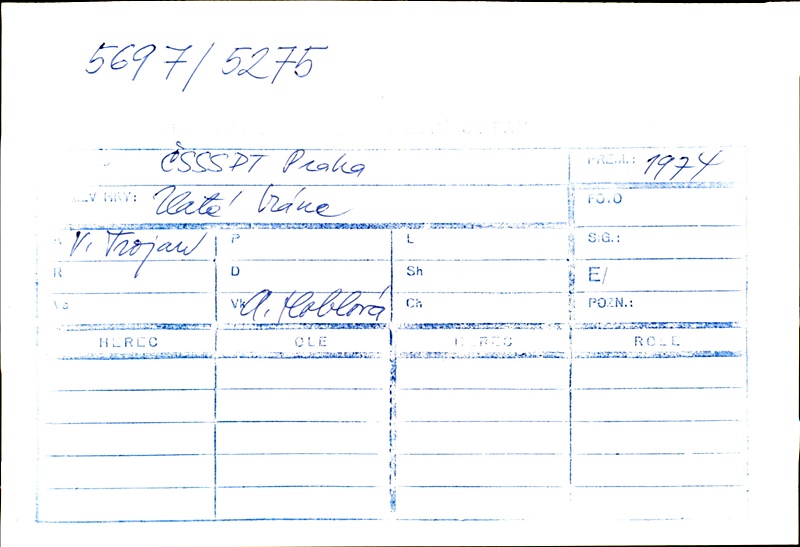 5697/5275
ČSSSDT Praha
PREM.: 1974
EV HRY: Zlatá Vrána
FOTO
V. Trojan P L SIG.:
R D Sh E/
Vk A. Ch POZN.:
HEREC OLE HEREC ROLE